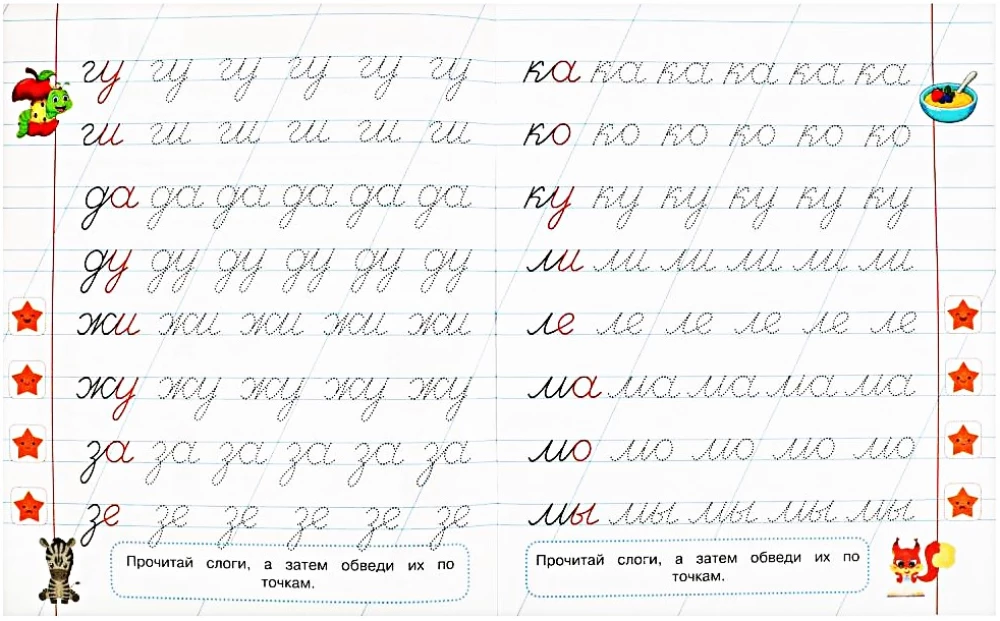 гу гу гу гу гу гу
ги ги ги ги ги ги
да да да да да да
ду ду ду ду ду ду
жи жи жи жи жи
жу жу жу жу жу
за за за за за за
зе зе зе зе зе зе
Прочитай слоги, а затем обведи их по
точкам.
ка ка ка ка ка ка
ко ко ко ко ко ко
ку ку ку ку ку ку
ли ли ли ли ли ли
ле ле ле ле ле ле
ма ма ма ма ма
мо мо мо мо мо
мы мы мы мы мы
Прочитай слоги, а затем обведи их по
точкам.